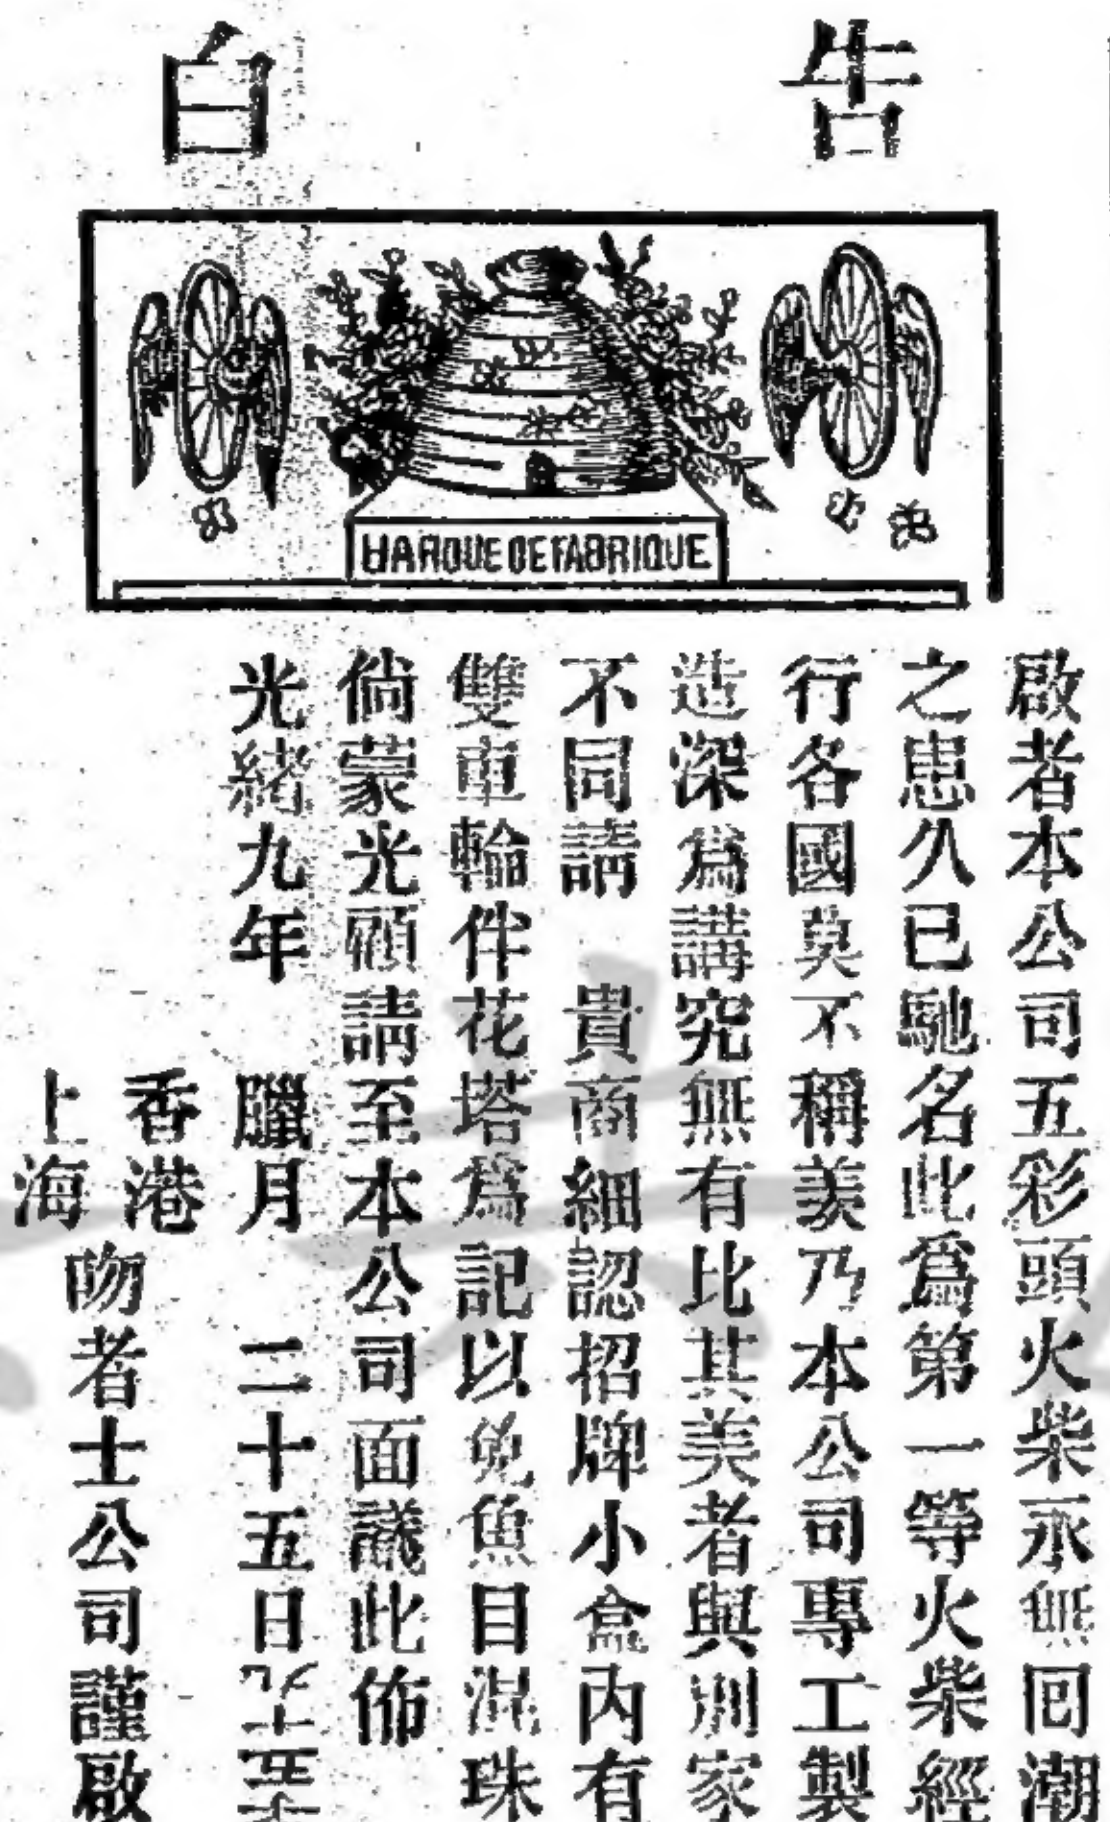 告白
MARQUE DE FABRIQUE
啟者本公司五彩頭火柴永無回潮
之患久已馳名此為第一等火柴經
行各國莫不稱羨乃本公司專工製
造深為講究無有比其美者與別家
不同請 貴商細認招牌小盒內有
雙車輪伴花塔為記以免魚目混珠
倘蒙光顧請至本公司面議此佈
光緒九年 臘月 二十五日
香港
上海
吻者士公司謹啟